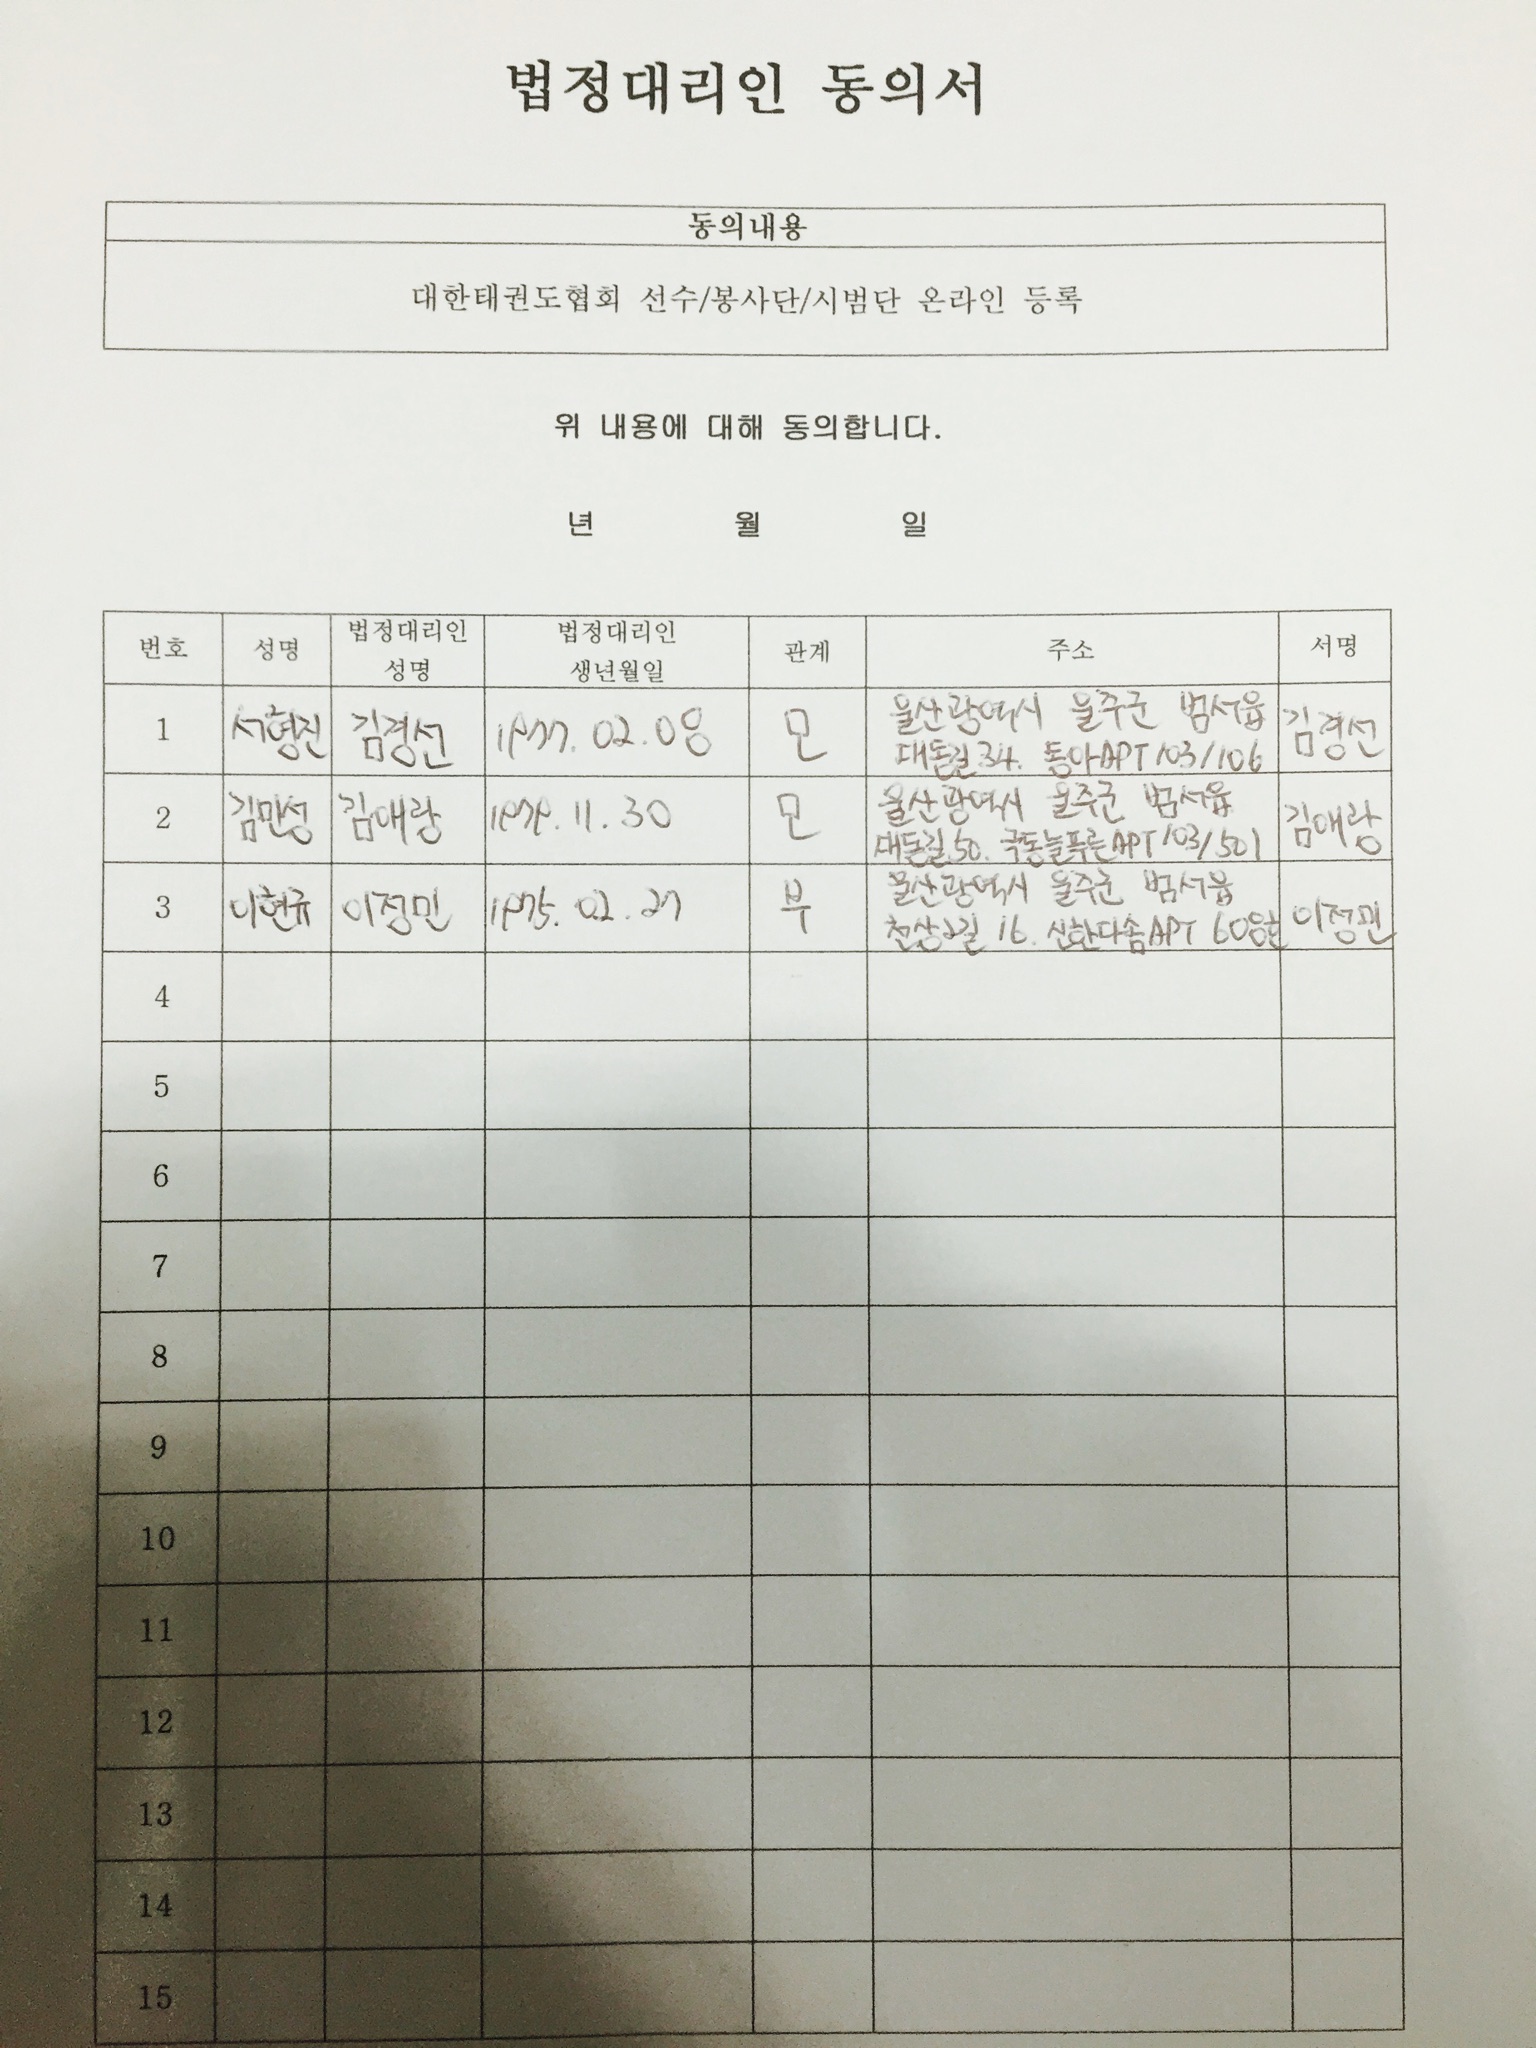 법정대리인 동의서
동의내용
대한태권도협회 선수/봉사단/시범단 온라인 등록
위 내용에 대해 동의합니다.
년 월 일
번호 성명 법정대리인 성명 법정대리인 생년월일 관계 주소 서명
1 서형진 김경선 1977.02.08 모 울산광역시 울주군 범서읍 김경선
대동길34. 동아APT 103/106
2 김민성 김애랑 1979.11.30 모 울산광역시 울주군 범서읍 김애랑
대동길50. 극동늘푸른APT 103/501
3 이현규 이정민 1975.02.27 부 울산광역시 울주군 범서읍 이정민
천상2길 16. 신한다솜APT 608호
4
5
6
7
8
9
10
11
12
13
14
15